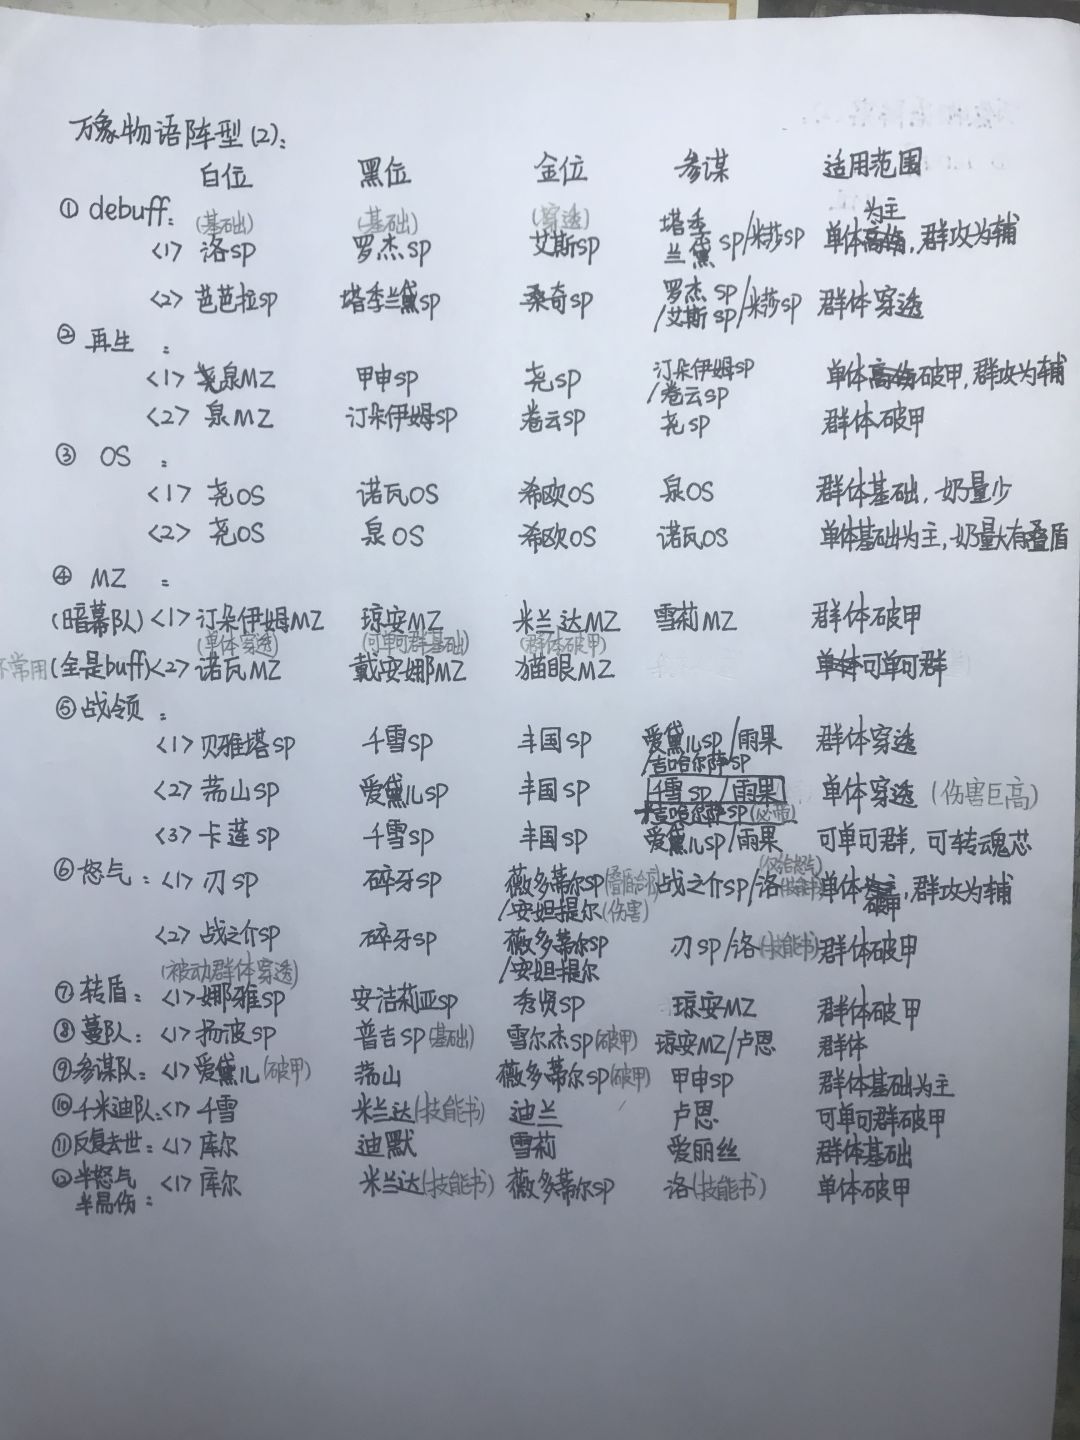 万象物语阵型(2)：
白位 黑位 金位 参谋 适用范围
① debuff： (基础) (基础) (穿透)
<1> 洛SP 罗杰SP 艾斯SP 塔季兰黛SP/米莎SP 单体为主，群攻为辅
<2> 芭芭拉SP 塔季兰黛SP 桑奇SP 罗杰SP/艾斯SP/米莎SP 群体穿透
② 再生：
<1> 尧泉MZ 甲申SP 尧SP 汀朵伊姆SP/卷云SP 单体破甲，群攻为辅
<2> 泉MZ 汀朵伊姆SP 卷云SP 尧SP 群体破甲
③ OS：
<1> 尧OS 诺瓦OS 希欧OS 泉OS 群体基础，奶量少
<2> 尧OS 泉OS 希欧OS 诺瓦OS 单体基础为主，奶量大有叠盾
④ MZ：
(暗幕队)<1> 汀朵伊姆MZ 琼安MZ 米兰达MZ 雪莉MZ 群体破甲
(单体穿透) (可单可群基础) (群体破甲)
不常用(全是buff)<2> 诺瓦MZ 戴安娜MZ 猫眼MZ 可单可群
⑤ 战领：
<1> 贝雅塔SP 千雪SP 丰国SP 爱黛儿SP/雨果/吉哈尔萨SP 群体穿透
<2> 荡山SP 爱黛儿SP 丰国SP 千雪SP/雨果 单体穿透(伤害巨高)
吉哈尔萨SP(必带)
<3> 卡莲SP 千雪SP 丰国SP 爱黛儿SP/雨果 可单可群，可转魂芯
⑥ 怒气：<1> 刃SP 碎牙SP 薇多蒂尔SP/安妲提尔(伤害) 战之介SP/洛(技能书) 单体破甲，群攻为辅
<2> 战之介SP 碎牙SP 薇多蒂尔SP/安妲提尔 刃SP/洛(技能书) 群体破甲
(被动群体穿透)
⑦ 转盾：<1> 娜雅SP 安洁莉亚SP 秀贤SP 琼安MZ 群体破甲
⑧ 蔓队：<1> 扬波SP 普吉SP(基础) 雪尔杰SP(破甲) 琼安MZ/卢恩 群体
⑨ 参谋队：<1> 爱黛儿(破甲) 荡山 薇多蒂尔SP(破甲) 甲申SP 群体基础为主
⑩ 千米迪队：<1> 千雪 米兰达(技能书) 迪兰 卢恩 可单可群破甲
⑪ 反复去世：<1> 库尔 迪默 雪莉 爱丽丝 群体基础
⑫ 半怒气半易伤：<1> 库尔 米兰达(技能书) 薇多蒂尔SP 洛(技能书) 单体破甲